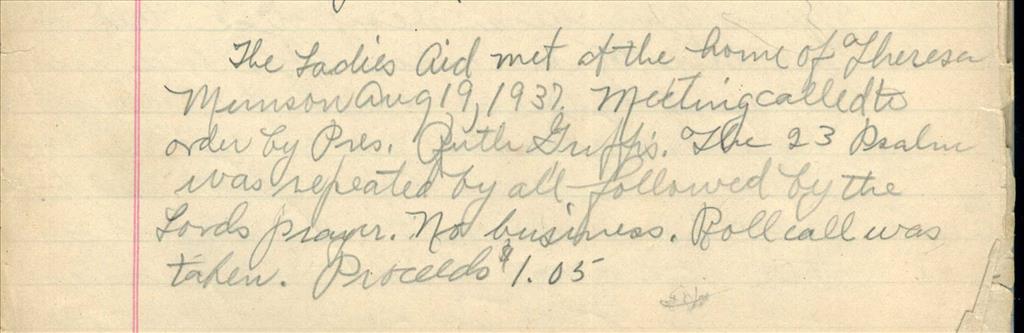 The Ladies Aid met at the home of Theresa
Munson Aug 19, 1937. Meeting called to
order by Pres. Ruth Griffis. The 23 Psalm
was repeated by all followed by the
Lords prayer. No business. Roll call was
taken. Proceeds $1.05